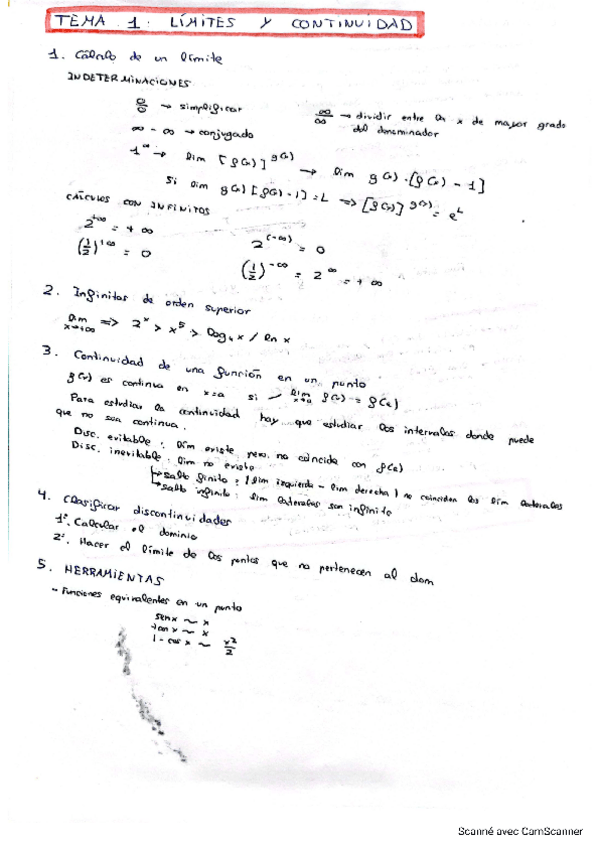 TEMA 1: LÍMITES Y CONTINUIDAD
1. Cálculo de un límite
INDETERMINACIONES
0/0 → simplificar
∞/∞ → dividir entre la x de mayor grado del denominador
∞ - ∞ → conjugado
1^∞ → lim [f(x)]^g(x) → lim g(x) · [f(x) - 1]
Si lim g(x) [f(x) - 1] = L => [f(x)]^g(x) = e^L
CÁLCULOS CON INFINITOS
2^+∞ = +∞
2^(-∞) = 0
(1/2)^+∞ = 0
(1/2)^-∞ = 2^∞ = +∞
2. Infinitos de orden superior
lim x→+∞ => 2^x > x^5 > log₄ x / ln x
3. Continuidad de una función en un punto
f(x) es continua en x=a si lim x→a f(x) = f(a)
Para estudiar la continuidad hay que estudiar los intervalos donde puede
que no sea continua.
Disc. evitable: lim existe pero no coincide con f(a)
Disc. inevitable: lim no existe
↳ salto finito: | lim izquierda - lim derecha | no coinciden los lim laterales
↳ salto infinito: lim laterales son infinito
4. Clasificar discontinuidades
1º. Calcular el dominio
2º. Hacer el límite de los puntos que no pertenecen al dom
5. HERRAMIENTAS
- Funciones equivalentes en un punto
senx ~ x
tanx ~ x
1 - cos x ~ x²/2
Scanné avec CamScanner